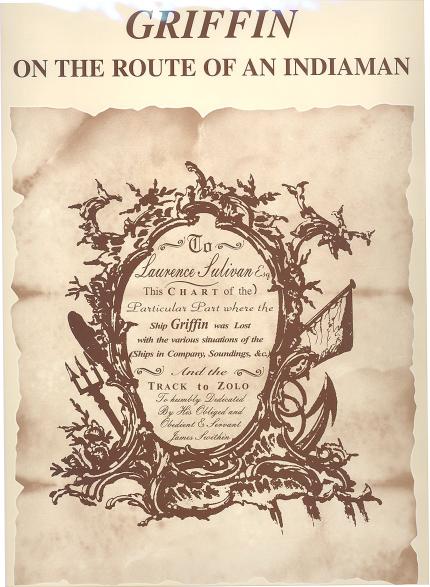 GRIFFIN
ON THE ROUTE OF AN INDIAMAN
To
Laurence Sulivan Esq
This CHART of the)
Particular Part where the
Ship Griffin was Lost
with the various situations of the
(Ships in Company, Soundings, &c.)
And the
TRACK to ZOLO
To humbly Dedicated
By His Obliged and
Obedient & Servant
James Swithin